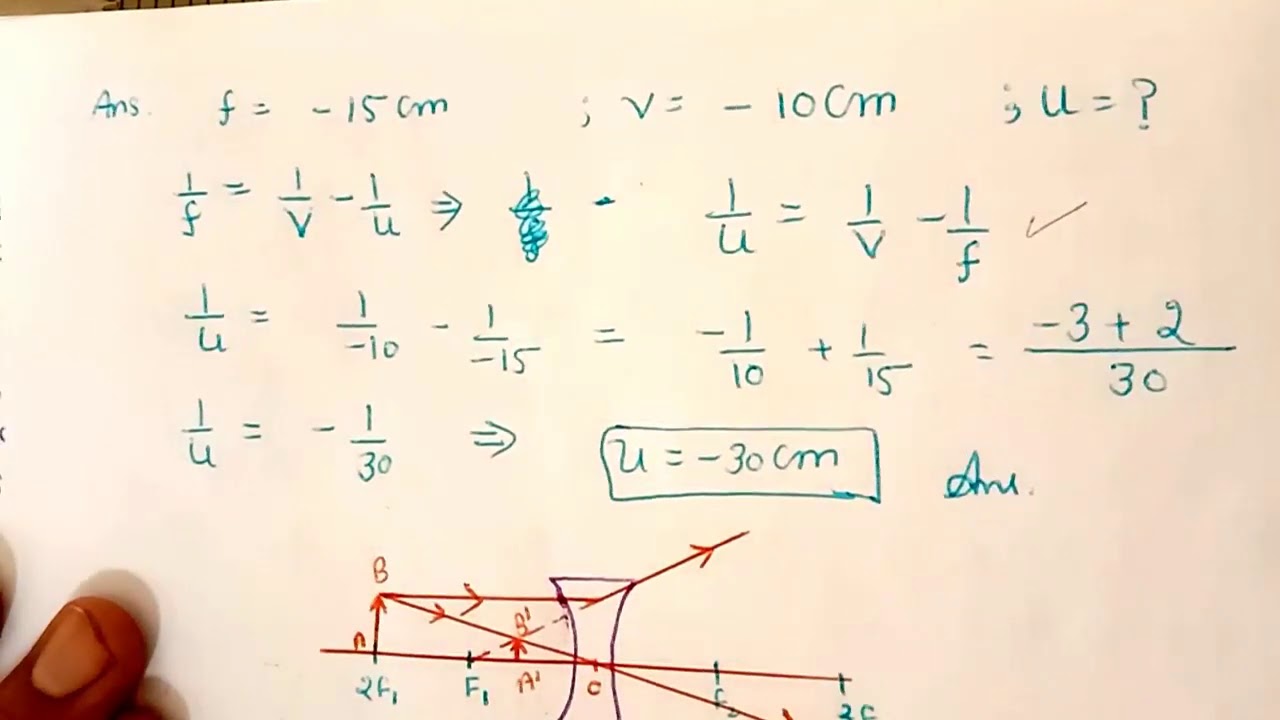 Ans. f = - 15 cm ; v = - 10 cm ; u = ?
1/f = 1/v - 1/u ⇒ 1/u = 1/v - 1/f ✓
1/u = 1/-10 - 1/-15 = -1/10 + 1/15 = -3 + 2/30
1/u = - 1/30 ⇒ u = -30 cm Ans.
B
B'
A
2F₁ F₁ A' C